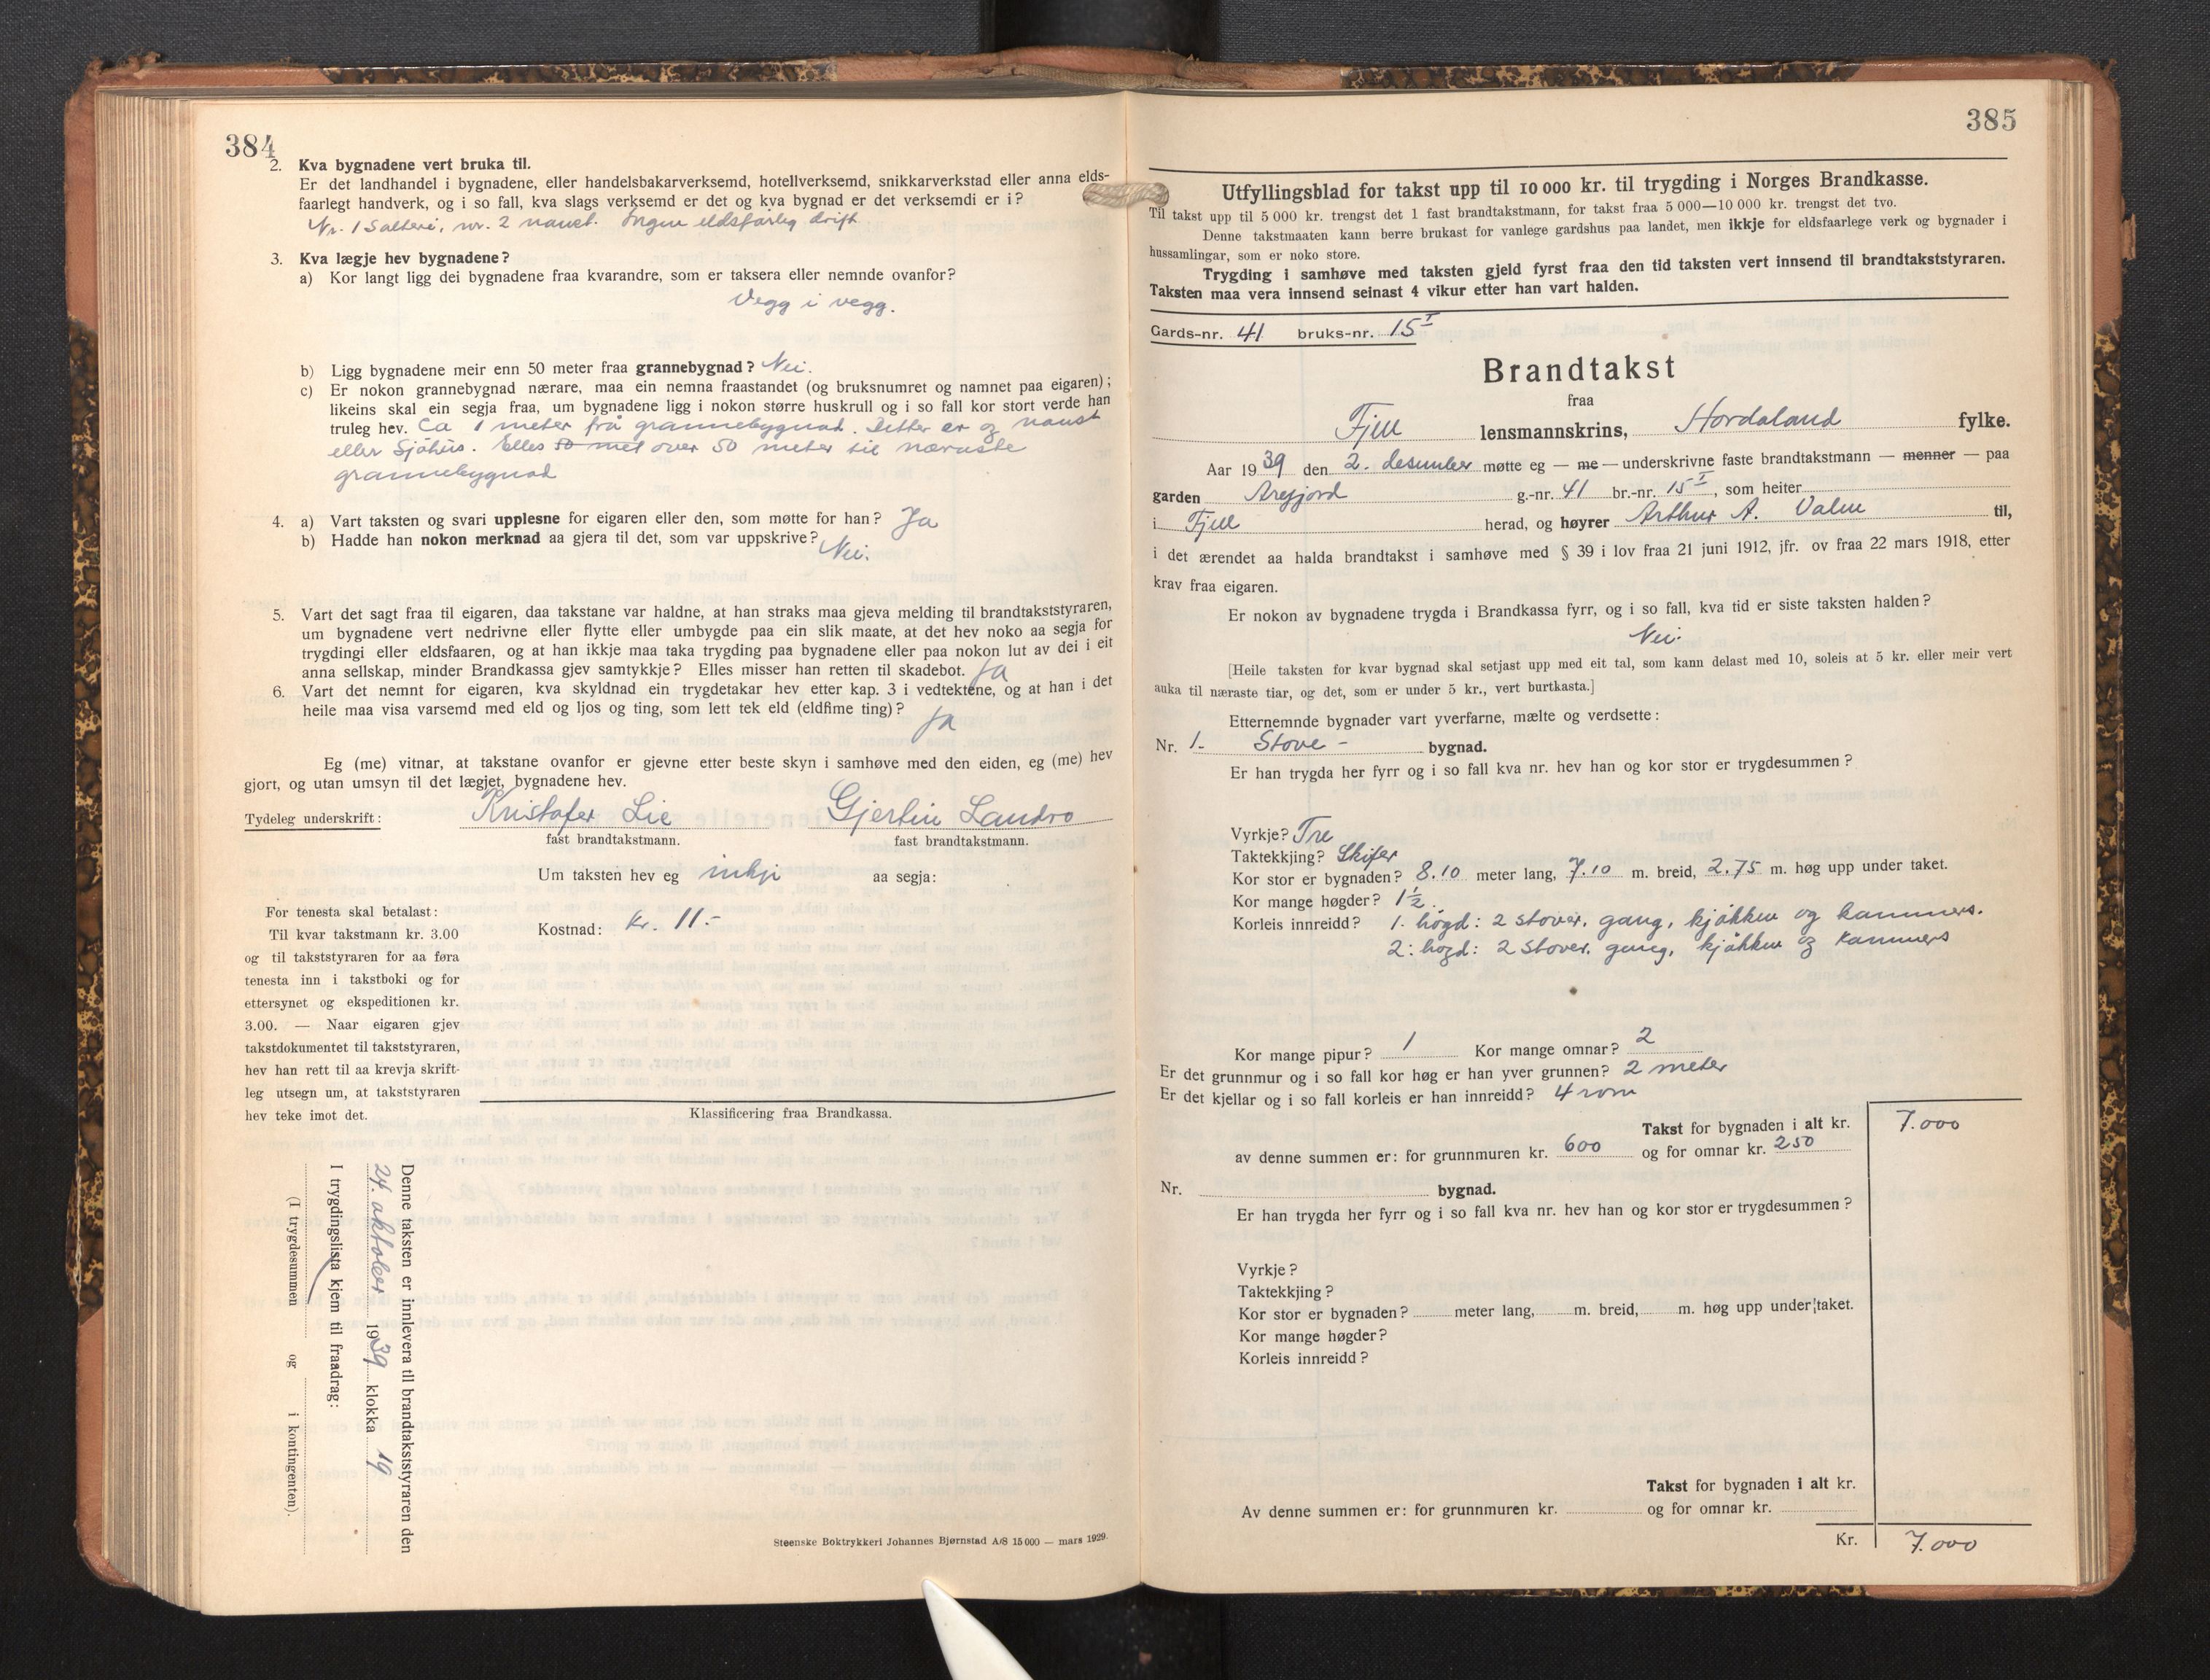 384
2. Kva bygnadene vert bruka til.
Er det landhandel i bygnadene, eller handelsbakarverksemd, hotellverksemd, snikkarverkstad eller anna elds-
faarlegt handverk, og i so fall, kva slags verksemd er det og kva bygnad er det verksemdi er i?
Nr. 1 Salteri, nr. 2 naust. Ingen eldsfarleg drift
3. Kva lægje hev bygnadene?
a) Kor langt ligg dei bygnadene fraa kvarandre, som er taksera eller nemnde ovanfor?
Vegg i vegg.
b) Ligg bygnadene meir enn 50 meter fraa grannebygnad? Nei.
c) Er nokon grannebygnad nærare, maa ein nemna fraastandet (og bruksnumret og namnet paa eigaren);
likeins skal ein segja fraa, um bygnadene ligg i nokon større huskrull og i so fall kor stort verde han
truleg hev. Ca 1 meter frå grannebygnad. Detter er og naust
eller Sjøhus. Elles 50 met over 50 meter til næraste
grannebygnad
4. a) Vart taksten og svari upplesne for eigaren eller den, som møtte for han? Ja
b) Hadde han nokon merknad aa gjera til det, som var uppskrive? Nei.
5. Vart det sagt fraa til eigaren, daa takstane var haldne, at han straks maa gjeva melding til brandtakststyraren,
um bygnadene vert nedrivne eller flytte eller umbygde paa ein slik maate, at det hev noko aa segja for
trygdingi eller eldsfaaren, og at han ikkje maa taka trygding paa bygnadene eller paa nokon lut av dei i eit
anna sellskap, minder Brandkassa gjev samtykkje? Elles misser han retten til skadebot. Ja
6. Vart det nemnt for eigaren, kva skyldnad ein trygdetakar hev etter kap. 3 i vedtektene, og at han i det
heile maa visa varsemd med eld og ljos og ting, som lett tek eld (eldfime ting)?
Ja
Eg (me) vitnar, at takstane ovanfor er gjevne etter beste skyn i samhøve med den eiden, eg (me) hev
gjort, og utan umsyn til det lægjet, bygnadene hev.
Tydeleg underskrift: Kristofer Lie Gjertin Landro
fast brandtakstmann. fast brandtakstmann.
Um taksten hev eg inkji aa segja:
Kostnad: Kr. 11.-
For tenesta skal betalast:
Til kvar takstmann kr. 3.00
og til takststyraren for aa føra
tenesta inn i takstboki og for
ettersynet og ekspeditionen kr.
3.00. — Naar eigaren gjev
takstdokumentet til takststyraren,
hev han rett til aa krevja skrift-
leg utsegn um, at takststyraren
hev teke imot det.
Klassificering fraa Brandkassa.
Denne taksten er innlevera til brandtakststyraren den
24. oktober 1939 klokka 19
I trygdingslista kjem til fraadrag:
(I trygdesummen og i kontingenten).
Steenske Boktrykkeri Johannes Bjørnstad A/S 15 000 — mars 1929.
385
Utfyllingsblad for takst upp til 10 000 kr. til trygding i Norges Brandkasse.
Til takst upp til 5 000 kr. trengst det 1 fast brandtakstmann, for takst fraa 5 000—10 000 kr. trengst det tvo.
Denne takstmaaten kann berre brukast for vanlege gardshus paa landet, men ikkje for eldsfaarlege verk og bygnader i
hussamlingar, som er noko store.
Trygding i samhøve med taksten gjeld fyrst fraa den tid taksten vert innsend til brandtakststyraren.
Taksten maa vera innsend seinast 4 vikur etter han vart halden.
Gards-nr. 41 bruks-nr. 15 I
Brandtakst
fraa
Fjell lensmannskrins, Hordaland fylke.
Aar 1939 den 2. desember møtte eg — me — underskrivne faste brandtakstmann — menner — paa
garden Arefjord g.-nr. 41 br.-nr. 15 I, som heiter
i Fjell herad, og høyrer Arthur A. Valen til,
i det ærendet aa halda brandtakst i samhøve med § 39 i lov fraa 21 juni 1912, jfr. ov fraa 22 mars 1918, etter
krav fraa eigaren.
Er nokon av bygnadene trygda i Brandkassa fyrr, og i so fall, kva tid er siste taksten halden?
Nei.
[Heile taksten for kvar bygnad skal setjast upp med eit tal, som kann delast med 10, soleis at 5 kr. eller meir vert
auka til næraste tiar, og det, som er under 5 kr., vert burtkasta.]
Etternemnde bygnader vart yverfarne, mælte og verdsette:
Nr. 1. Stove - bygnad.
Er han trygda her fyrr og i so fall kva nr. hev han og kor stor er trygdesummen?
Vyrkje? Tre
Taktekkjing? Skifer
Kor stor er bygnaden? 8.10 meter lang, 7.10 m. breid, 2.75 m. høg upp under taket.
Kor mange høgder? 1½.
Korleis innreidd? 1. högd: 2 stover, gang, kjökken og kammers.
2: högd: 2 stover, gang, kjökken og kammers
Kor mange pipur? 1 Kor mange omnar? 2
Er det grunnmur og i so fall kor høg er han yver grunnen? 2 meter
Er det kjellar og i so fall korleis er han innreidd? 4 rom
Takst for bygnaden i alt kr. 7.000
av denne summen er: for grunnmuren kr. 600 og for omnar kr. 250
Nr. bygnad.
Er han trygda her fyrr og i so fall kva nr. hev han og kor stor er trygdesummen?
Vyrkje?
Taktekkjing?
Kor stor er bygnaden? meter lang, m. breid, m. høg upp under taket.
Kor mange høgder?
Korleis innreidd?
Takst for bygnaden i alt kr.
Av denne summen er: for grunnmuren kr. og for omnar kr.
Kr. 7.000